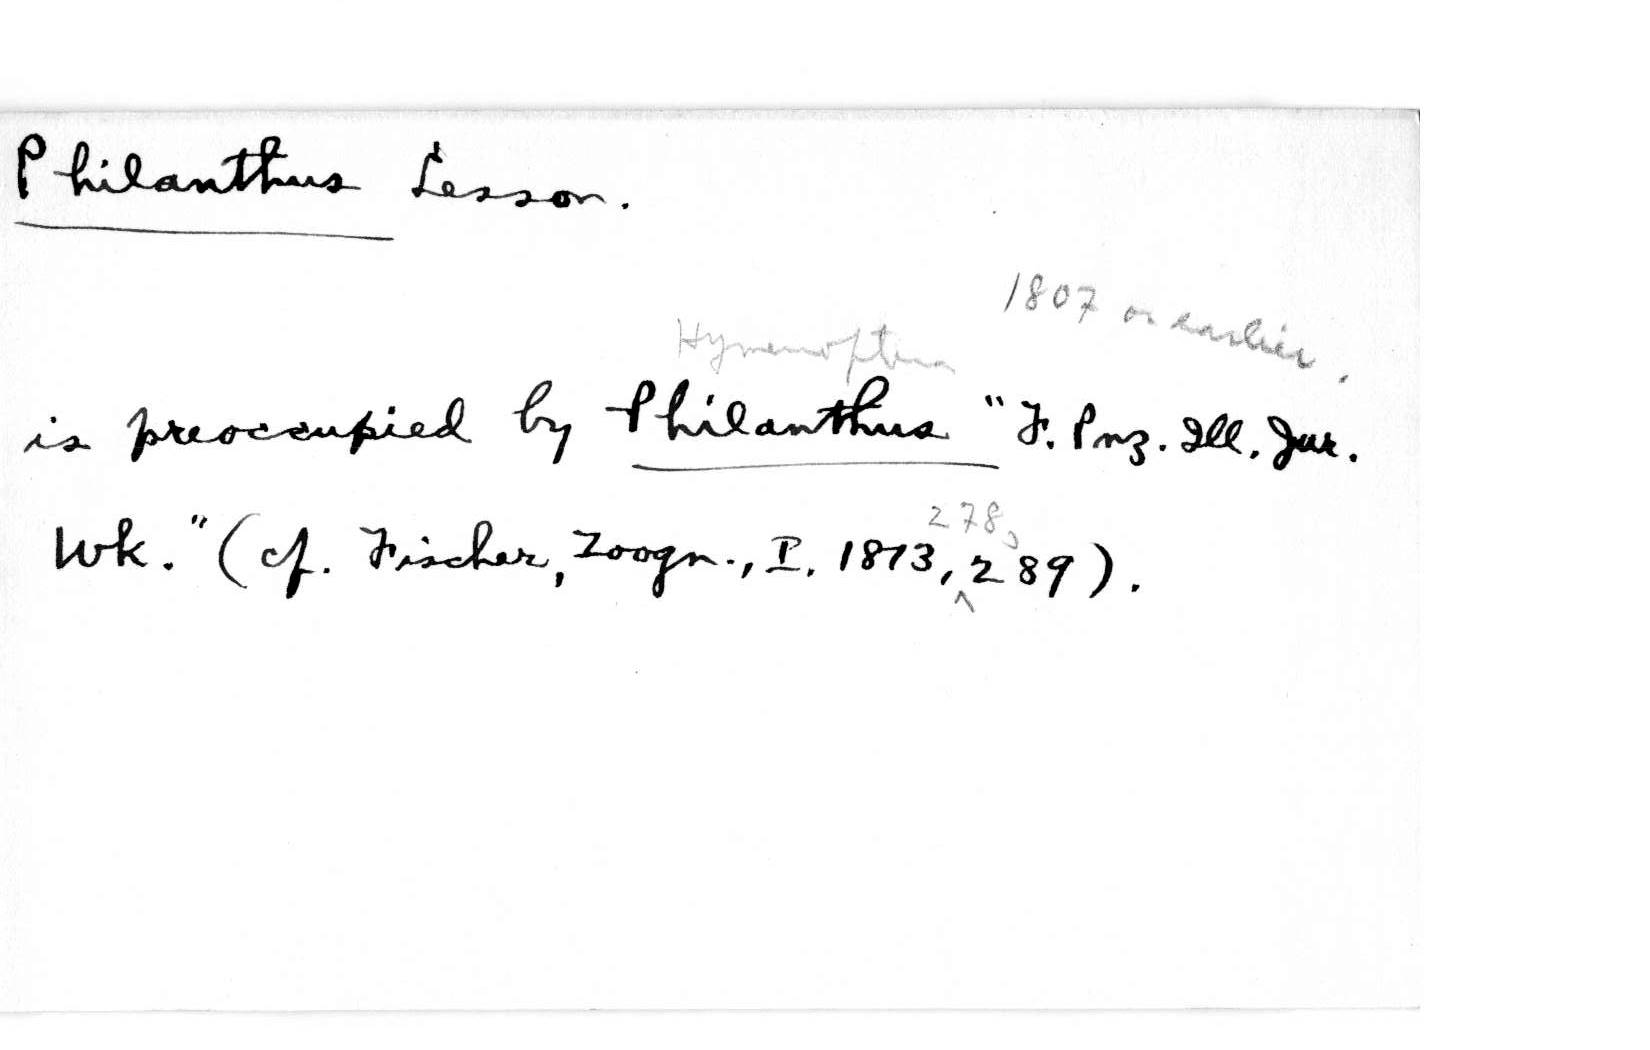 Philanthus Lesson.
1807 or earlier.
Hymenoptera
is preoccupied by Philanthus "F. Pnz. Ill. Jur.
278,
Wk." (cf. Fischer, Zoogn., I. 1813, ^ 289).